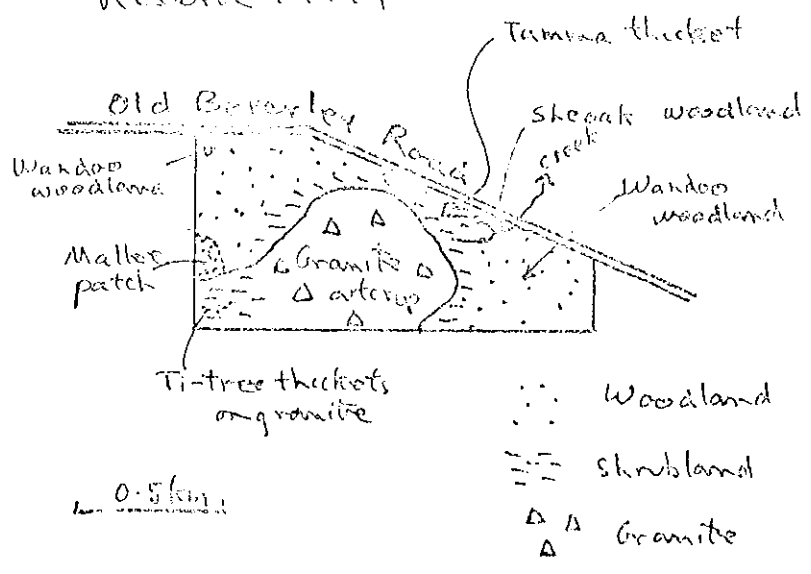 Tamma thicket
Old Beverley Road
Sheoak woodland
creek
Wandoo
woodland
Wandoo
woodland
Mallet
patch
Granite
outcrop
Ti-tree thickets
on granite
Woodland
Shrubland
0.5 km
Granite